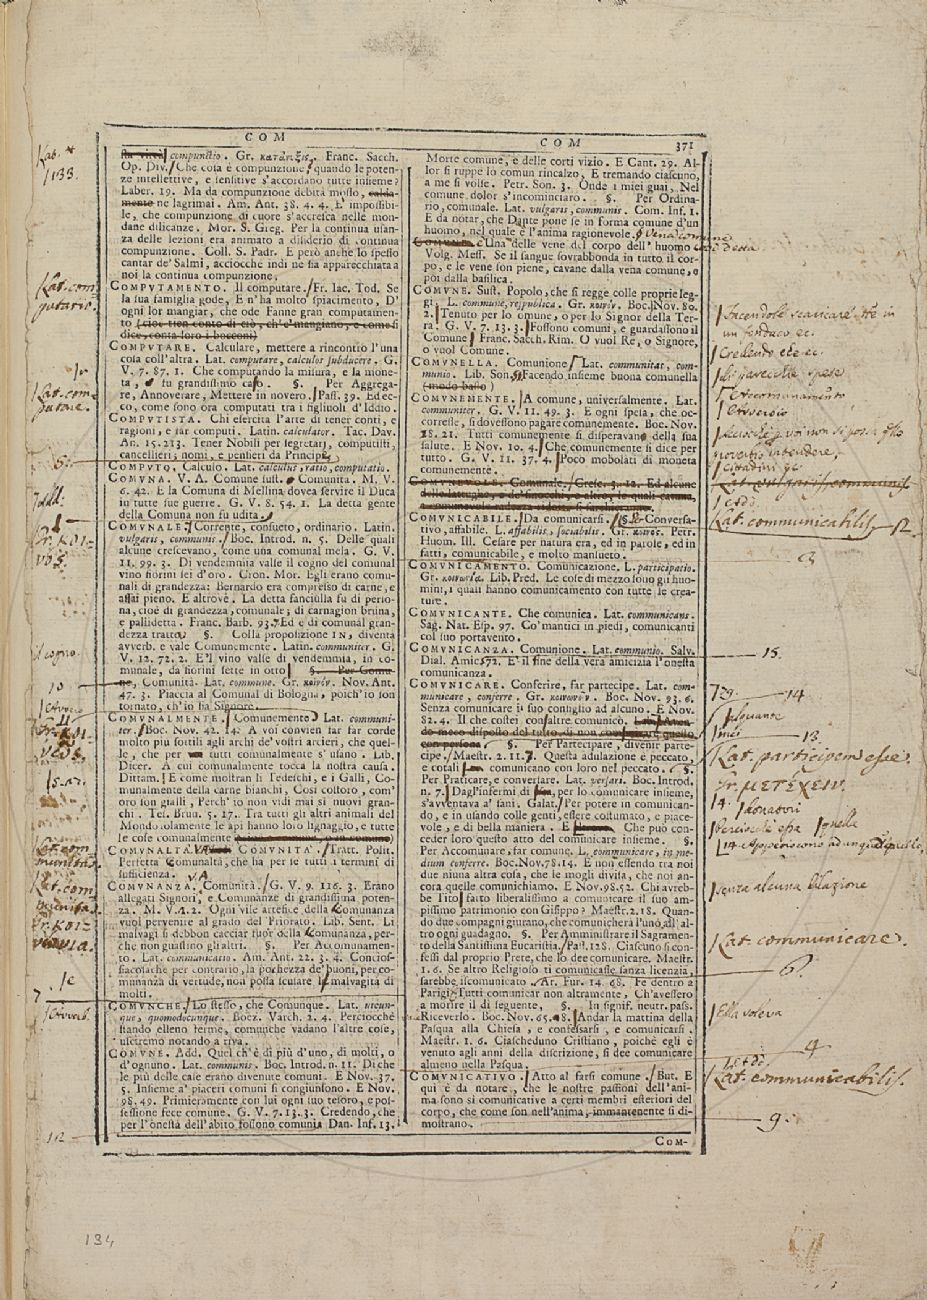 COM
COM
371
compunctio. Gr. Franc. Sacch.
Op. Div. Che cosa è compunzione? quando le poten-
ze intellettive, e sensitive s'accordano tutte insieme?
Laber. 19. Ma da compunzione debita mosso,
ne lagrimai. Am. Ant. 38. 4. 4. E' impossibi-
le, che compunzione di cuore s'accresca nelle mon-
dane dilicanze. Mor. S. Greg. Per la continua usan-
za delle lezioni era animato a disiderio di continua
compunzione. Coll. S. Padr. E però anche lo spesso
cantar de' Salmi, acciocchè indi ne sia apparecchiata a
noi la continua compunzione.
COMPUTAMENTO. Il computare. Fr. Iac. Tod. Se
la sua famiglia gode, E n'ha molto spiacimento, D'
ogni lor mangiar, che ode Fanne gran computamento
(cioè tien conto di ciò, ch'e' mangiano, e come si
dice, conta loro i bocconi)
COMPUTARE. Calculare, mettere a rincontro l'una
cosa coll'altra. Lat. computare, calculos subducere. G.
V. 7. 87. 1. Che computando la misura, e la mone-
ta, fu grandissimo caso. §. Per Aggrega-
re, Annoverare, Mettere in novero. Pass. 39. Ed ec-
co, come sono ora computati tra i figliuoli d'Iddio.
COMPUTISTA. Chi esercita l'arte di tener conti, e
ragioni, e far computi. Latin. calculator. Tac. Dav.
An. 15. 213. Tener Nobili per segretarj, computisti,
cancellieri; nomi, e pensieri da Principe
COMPUTO. Calcolo. Lat. calculus, ratio, computatio.
COMVNA. V. A. Comune sust. Comunita. M. V.
6. 42. E la Comuna di Messina dovea servire il Duca
in tutte sue guerre. G. V. 8. 54. 1. La detta gente
della Comuna non fu udita.
COMVNALE. Corrente, consueto, ordinario. Latin.
vulgaris, communis. Boc. Introd. n. 5. Delle quali
alcune crescevano, come una comunal mela. G. V.
11. 99. 3. Di vendemmia valse il cogno del comunal
vino fiorini sei d'oro. Cron. Mor. Egli erano comu-
nali di grandezza: Bernardo era compresso di carne, e
assai pieno. E altrove. La detta fanciulla fu di perso-
na, cioè di grandezza, comunale; di carnagion bruna,
e pallidetta. Franc. Barb. 93. Ed e di comunal gran-
dezza tratta §. Colla proposizione IN, diventa
avverb. e vale Comunemente. Latin. communiter. G.
V. 12. 72. 2. E'l vino valse di vendemmia, in co-
munale, da fiorini sette in otto §. Per Comu-
ne, Comunità. Lat. commune. Gr. κοινὸν. Nov. Ant.
47. 3. Piaccia al Comunal di Bologna, poich'io son
tornato, ch'io sia Signore.
COMVNALMENTE. Comunemente Lat. communi-
ter. Boc. Nov. 42. 14. A voi convien far far corde
molto più sottili agli archi de' vostri arcieri, che quel-
le, che per tutti comunalmente s'usano. Lib.
Dicer. A cui comunalmente tocca la nostra causa.
Dittam. E come mostran li Tedeschi, e i Galli, Co-
munalmente della carne bianchi, Così costoro, com'
oro son gialli, Perch'io non vidi mai sì nuovi gran-
chi. Tes. Brun. 5. 17. Tra tutti gli altri animali del
Mondo solamente le api hanno loro lignaggio, e tutte
le cose comunalmente
COMVNALTA. COMVNITA'. Tratt. Polit.
Perfetta Comunaltà, che ha per se tutti i termini di
sufficienza.
COMVNANZA. Comunità. G. V. 9. 116. 3. Erano
allegati Signori, e Comunanze di grandissima poten-
za. M. V. 1. 2. Ogni vile artefice della Comunanza
vuol pervenire al grado del Priorato. Lib. Sent. Li
malvagi si debbon cacciar fuor della Comunanza, per-
che non guastino gli altri. §. Per Accomunamen-
to. Lat. communicatio. Am. Ant. 22. 3. 4. Concios-
siacosachè per contrario, la pochezza de' buoni, per co-
munanza di vertude, non possa sculare la malvagità di
molti.
COMVNCHE, Lo stesso, che Comunque. Lat. utcun-
que, quomodocunque. Boez. Varch. 2. 4. Perciocchè
stando elleno ferme, comunche vadano l'altre cose,
usciremo notando a riva.
COMVNE. Add. Quel ch'è di più d'uno, di molti, o
d'ognuno. Lat. communis. Boc. Introd. n. 11. Di che
le più delle case erano divenute comuni. E Nov. 37.
5. Insieme a' piaceri comuni si congiunsono. E Nov.
98. 49. Primieramente con lui ogni suo tesoro, e pos-
sessione fece comune. G. V. 7. 13. 3. Credendo, che
per l'onestà dell'abito fossono comuni. Dan. Inf. 13.
Morte comune, e delle corti vizio. E Cant. 29. Al-
lor si ruppe lo comun rincalzo, E tremando ciascuno,
a me si volse. Petr. Son. 3. Onde i miei guai, Nel
comune dolor s'incominciaro. §. Per Ordina-
rio, comunale. Lat. vulgaris, communis. Com. Inf. 1.
E da notar, che Dante pone se in forma comune d'un
huomo, nel quale è l'anima ragionevole. § Vena comune,
è Una delle vene del corpo dell'huomo così detta
Volg. Mess. Se il sangue sovrabbonda in tutto il cor-
po, e le vene son piene, cavane dalla vena comune, o
poi dalla basilica.
COMVNE. Sust. Popolo, che si regge colle proprie leg-
gi. L. commune, respublica. Gr. κοινὸν. Boc. Nov. 80.
2. Tenuto per lo comune, o per lo Signor della Ter-
ra. G. V. 7. 13. 3. Fossono comuni, e guardassono il
Comune Franc. Sacch. Rim. O vuol Re, o Signore,
o vuol Comune.
COMVNELLA. Comunione Lat. communitas, com-
munio. Lib. Son. Facendo insieme buona comunella
(modo basso)
COMVNEMENTE. A comune, universalmente. Lat.
communiter. G. V. 11. 49. 3. E ogni spesa, che oc-
corresse, si dovessono pagare comunemente. Boc. Nov.
18. 21. Tutti comunemente si disperavano della sua
salute. E Nov. 10. 4. Che comunemente si dice per
tutto. G. V. 11. 37. 4. Poco mobolati di moneta
comunemente.
COMVNICABILE. Da comunicarsi. § Conversa-
tivo, affabile. L. affabilis, sociabilis. Gr. κοινὸς. Petr.
Huom. Ill. Cesare per natura era, ed in parole, ed in
fatti, comunicabile, e molto mansueto.
COMVNICAMENTO. Comunicazione. L. participatio.
Gr. κοινωνία. Lib. Pred. Le cose di mezzo sono gli huo-
mini, i quali hanno comunicamento con tutte le crea-
ture.
COMVNICANTE. Che comunica. Lat. communicans.
Sag. Nat. Esp. 97. Co' mantici in piedi, comunicanti
col suo portavento.
COMVNICANZA. Comunione. Lat. communio. Salv.
Dial. Amic. 72. E' il fine della vera amicizia l'onesta
comunicanza.
COMVNICARE. Conferire, far partecipe. Lat. com-
municare, conferre. Gr. κοινωνεῖν. Boc. Nov. 93. 6.
Senza comunicare il suo consiglio ad alcuno. E Nov.
82. 4. Il che costei con altre comunicò.
§. Per Partecipare, divenir parte-
cipe. Maestr. 2. 11. 7. Questa adulazione è peccato,
e cotali comunicano con loro nel peccato. §.
Per Praticare, e conversare. Lat. versari. Boc. Introd.
n. 7. Dagl'infermi di, per lo comunicare insieme,
s'avventava a' sani. Galat. Per potere in comunican-
do, e in usando colle genti, essere costumato, e piace-
vole, e di bella maniera. E Che può con-
ceder loro questo atto del comunicare insieme. §.
Per Accomunare, far comune. L. communicare, in me-
dium conferre. Boc. Nov. 78. 14. E non essendo tra noi
due niuna altra cosa, che le mogli divisa, che noi an-
cora quelle comunichiamo. E Nov. 98. 52. Chi avreb-
be Tito fatto liberalissimo a comunicare il suo am-
pissimo patrimonio con Gisippo? Maestr. 2. 18. Quan-
do due compagni giurano, che comunicherà l'uno all'al-
tro ogni guadagno. §. Per Amministrare il Sagramen-
to della Santissima Eucaristia. Pass. 128. Ciascuno si con-
fessi dal proprio Prete, che lo dee comunicare. Maestr.
1. 6. Se altro Religioso ti comunicasse sanza licenzia,
sarebbe iscomunicato. Ar. Fur. 14. 68. Fe dentro a
Parigi Tutti comunicar non altramente, Ch'avessero
a morire il dì seguente, §. In signif. neutr. pass.
Riceverlo. Boc. Nov. 65. 8. Andar la mattina della
Pasqua alla Chiesa, e confessarsi, e comunicarsi.
Maestr. 1. 6. Ciascheduno Cristiano, poichè egli è
venuto agli anni della discrizione, si dee comunicare
almeno nella Pasqua.
COMVNICATIVO. Atto al farsi comune. But. E
qui è da notare, che le nostre passioni dell'ani-
ma sono sì comunicative a certi membri esteriori del
corpo, che come son nell'anima, immantenente si di-
mostrano.
COM-
Lat. com-
putare.
il cogno.
Facendole scaricare
Credendo che ec.
Accomunamento
Lat. communicabilis. 12.
15.
14.
13.
Lat. participem esse
Gr. μετέχειν.
senza alcuna dilazione
Lat. communicare.
6.
Ella voleva
4
Lat. communicabilis.
9.
112
134